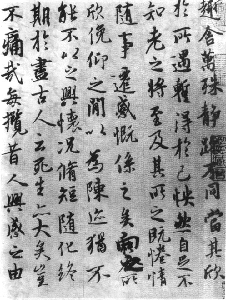 趣舍萬殊靜躁不同當其欣
於所遇暫得於己快然自足不
知老之將至及其所之既惓情
隨事遷感慨係之矣向之所
欣俛仰之閒以為陳迹猶不
能不以之興懷況脩短隨化終
期於盡古人云死生亦大矣豈
不痛哉每攬昔人興感之由